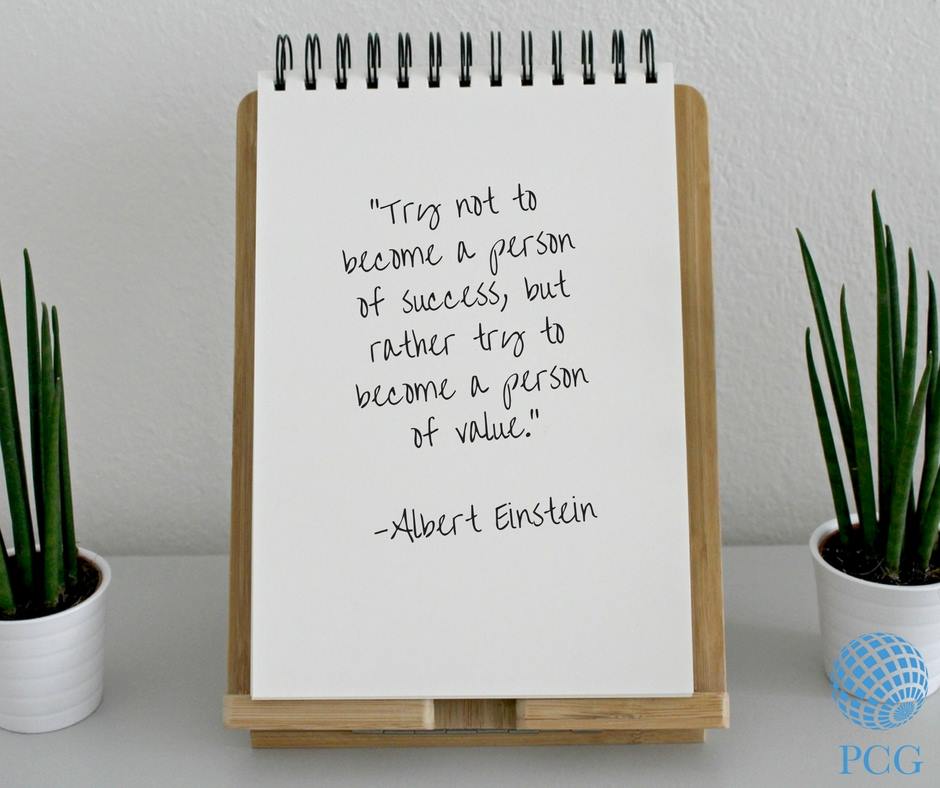 "Try not to
become a person
of success, but
rather try to
become a person
of value."
-Albert Einstein
PCG